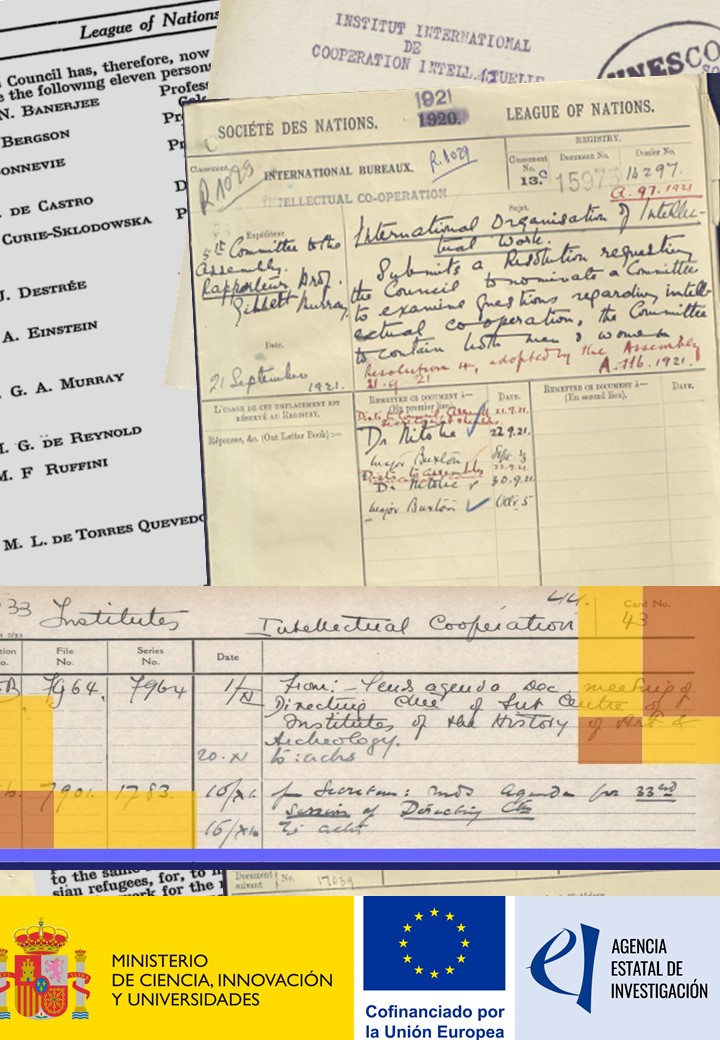 League of Nations
Council has, therefore, now
the following eleven persons
N. BANERJEE Profess
BERGSON
ONNEVIE
DE CASTRO
CURIE-SKLODOWSKA
J. DESTRÉE
A. EINSTEIN
G. A. MURRAY
G. DE REYNOLD
M. F RUFFINI
M. L. DE TORRES QUEVEDO
INSTITUT INTERNATIONAL
DE
COOPERATION INTELLECTUELLE
UNESCO
1921
SOCIÉTÉ DES NATIONS. 1920. LEAGUE OF NATIONS.
REGISTRY.
Classement No. Document No. Dossier No.
13. 15973 14297.
A. 97. 1921
R1029 INTERNATIONAL BUREAUX. R.1029
INTELLECTUAL CO-OPERATION
Expéditeur.
5th Committee to the
Assembly.
Rapporteur Prof.
Gilbert Murray
Date.
21 September 1921.
Sujet.
International Organisation of Intellec-
tual Work.
Submits a Resolution requesting
the Council to nominate a Committee
to examine questions regarding intell-
ectual co-operation, the Committee
to contain both men & women
Resolution 4, adopted by the Assembly
21.9.21 A.116.1921.
L'USAGE DE CET EMPLACEMENT EST
RÉSERVÉ AU REGISTRY.
Réponses, &c. (Out Letter Book) :—
REMETTRE CE DOCUMENT À— DATE.
(En premier lieu).
21.9.21.
Dr Nitobe 22.9.21.
Major Buxton Sept. 23
22.9.21.
Dr Nitobe 30.9.21
Major Buxton Oct. 5
REMETTRE CE DOCUMENT À— DATE.
(En second lieu).
33 Institutes Intellectual Cooperation 44.
Card No.
43
File No. Series No. Date
7964. 7964 1/XI From:- Sends agenda Dec. meeting of
Directing Cttee of Sub Centre of
Institutes of the History of Art &
Archeology.
20.XI to: acks
7901. 1783. 10/XI fm Secretan: sends agenda for 33rd
Session of Directing Cttee
16/XI To ackt
to the same
sian refugees, for, to
work for the
Document No. 17039
MINISTERIO
DE CIENCIA, INNOVACIÓN
Y UNIVERSIDADES
Cofinanciado por
la Unión Europea
AGENCIA
ESTATAL DE
INVESTIGACIÓN